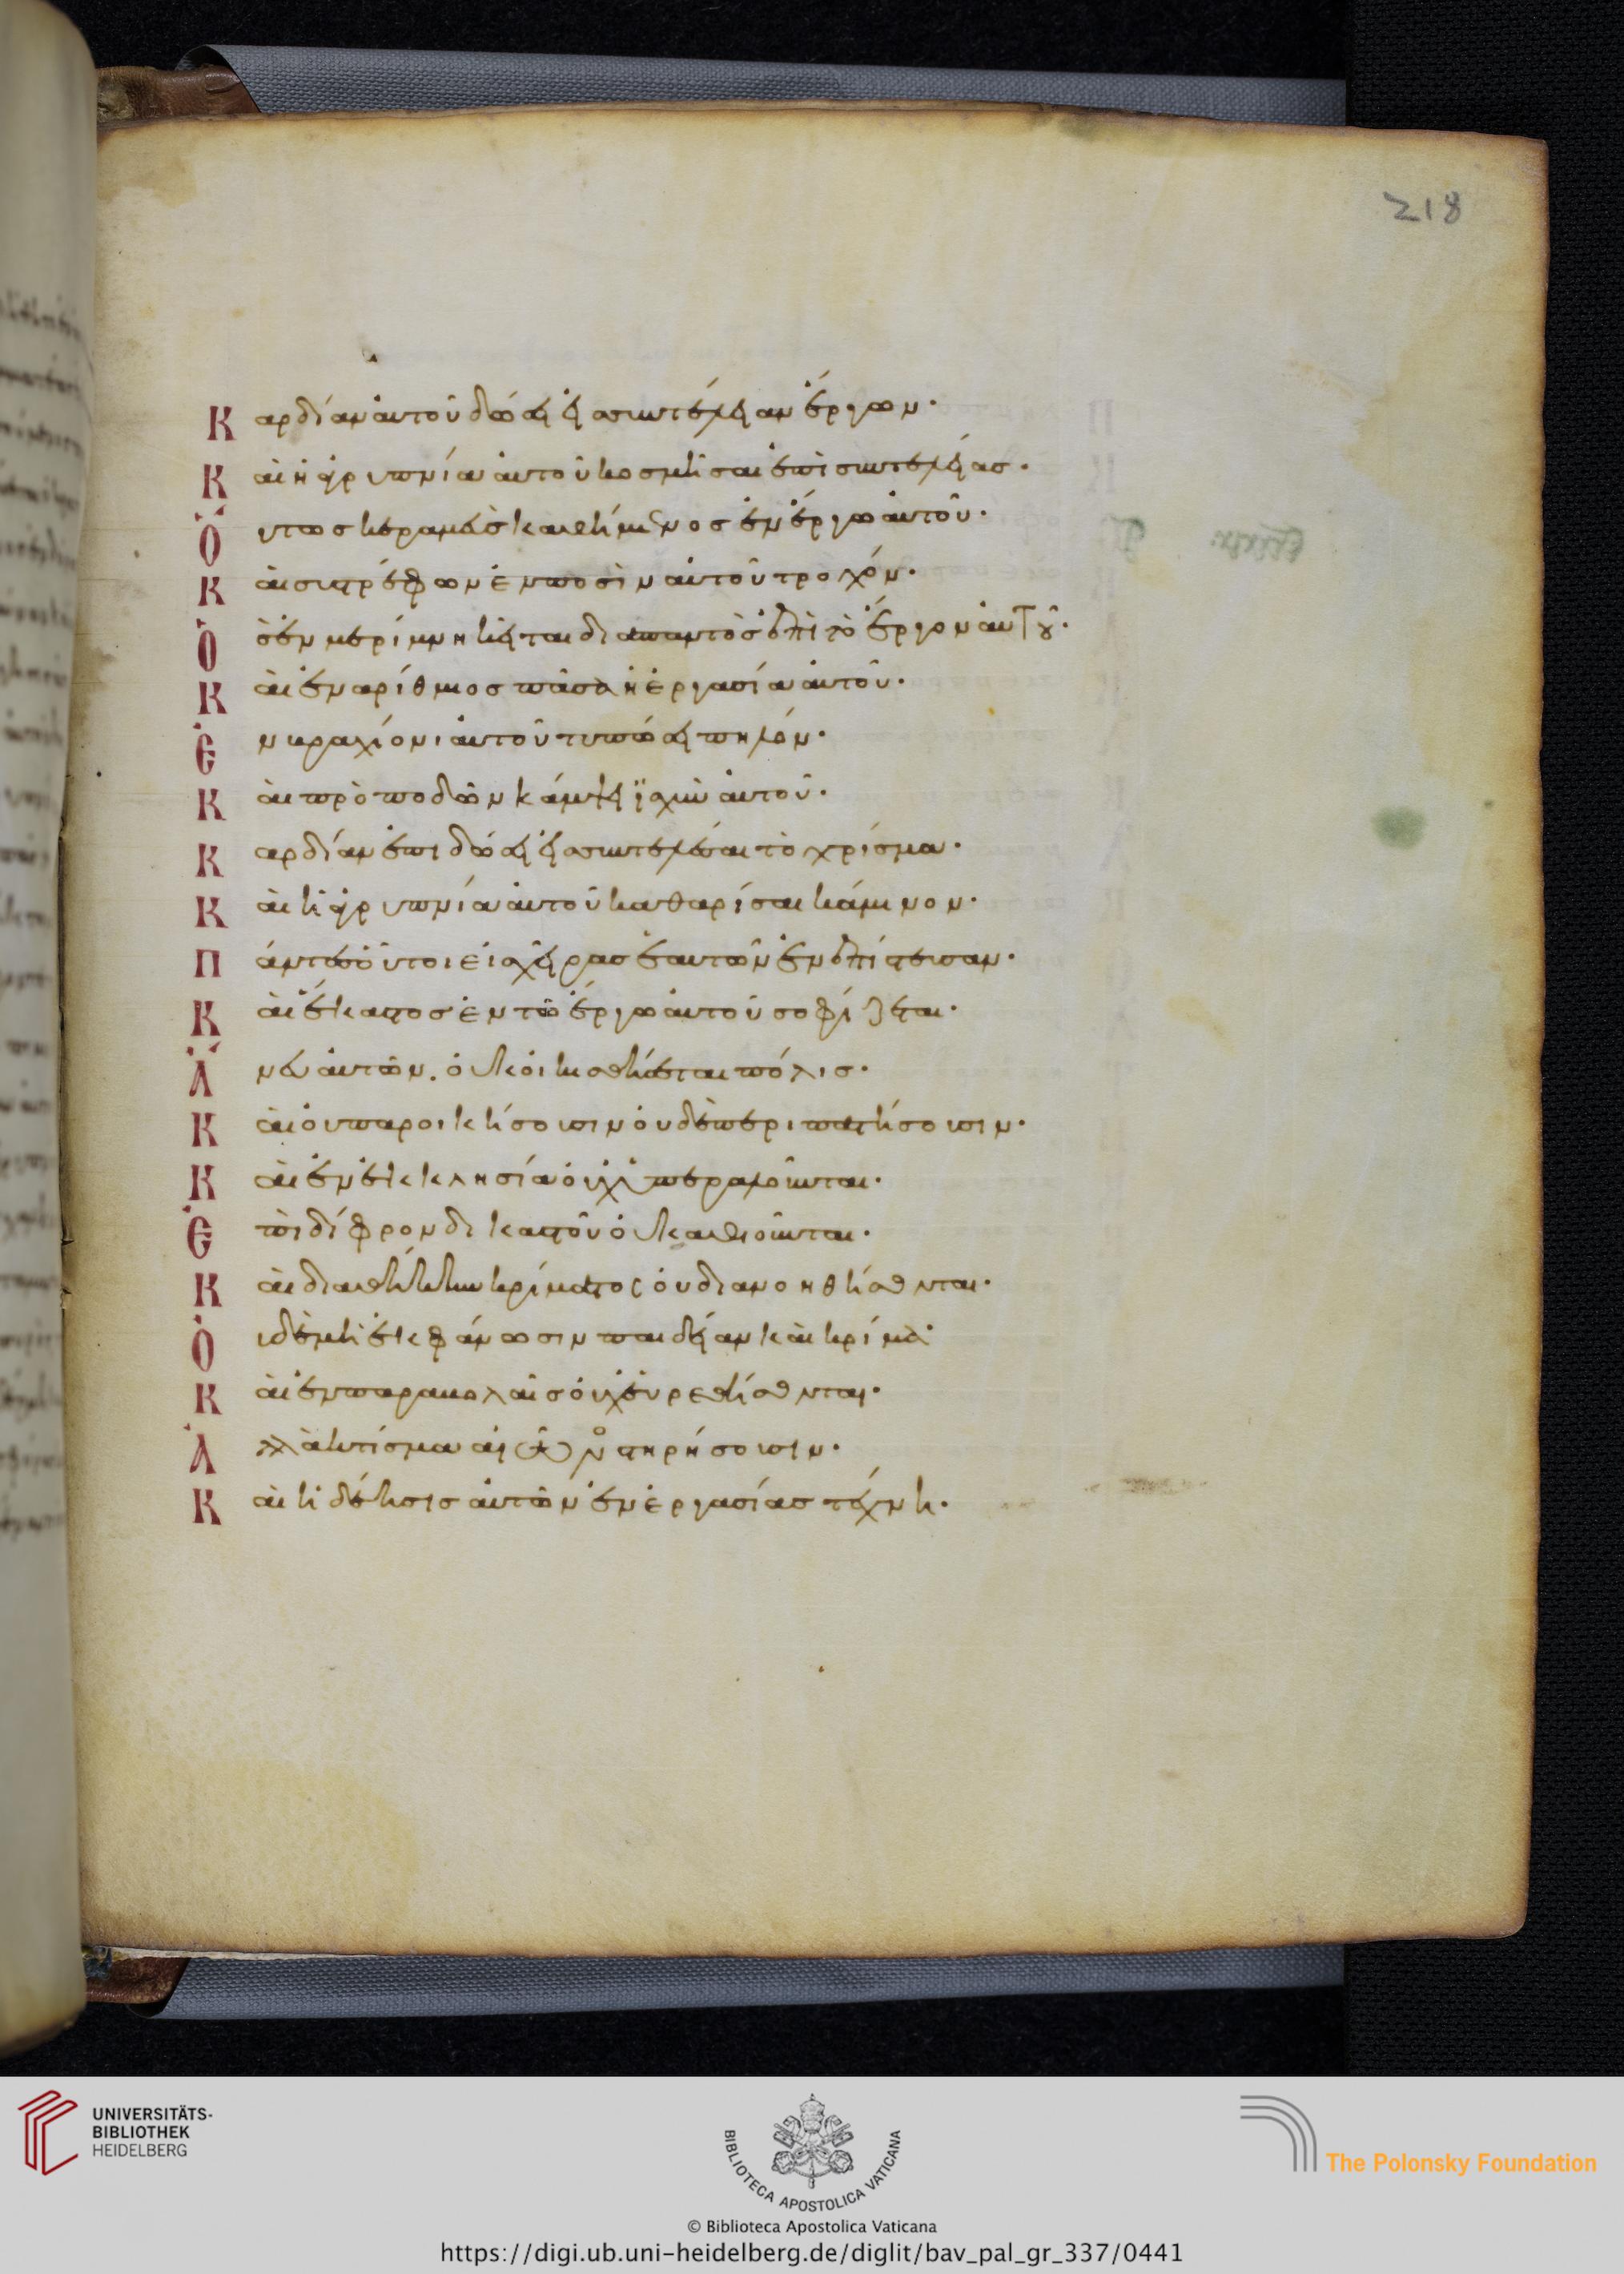 218
Καρδίαν αὐτοῦ δώσει εἰσ συντέλειαν ἔργων·
Καὶ ἡ ἀγρυπνία αὐτοῦ κοσμῆσαι ἐπὶ συντελείας·
Οὕτως κεραμεὺς καθήμενος ἐν ἔργω αὐτοῦ·
Καὶ συστρέφων ἐν ποσὶν αὐτοῦ τροχόν·
Ὃς ἐν μερίμνη κεῖται διαπαντὸς ἐπὶ τὸ ἔργον αὐτοῦ·
Καὶ ἐναρίθμιος πᾶσα ἡ ἐργασία αὐτοῦ·
Ἐν βραχίονι αὐτοῦ τυπώσει πηλόν·
Καὶ πρὸ ποδῶν κάμψει ἰσχὺν αὐτοῦ·
Καρδίαν ἐπιδώσει εἰσ συντελέσαι τὸ χρίσμα·
Καὶ ἡ ἀγρυπνία αὐτοῦ καθαρίσαι κάμινον·
Πάντες οὗτοι εἰς χεῖρας ἑαυτῶν ἐνεπίστευσαν·
Καὶ ἕκαστος ἐν τῶ ἔργω αὐτοῦ σοφίζεται·
Ἄνευ αὐτῶν. οὐκ οἰκισθήσεται πόλις·
Καὶ οὐ παροικήσουσιν οὐδὲ περιπατήσουσιν·
Καὶ ἐν ἐκκλησία οὐχ ὑπεραλοῦνται·
Ἐπὶ δίφρον δικαστοῦ οὐ καθιοῦνται·
Καὶ διαθήκην κρίματος οὐ διανοηθήσονται·
Οὐδὲ μὴ ἐκφάνωσιν παιδείαν καὶ κρίμα·
Καὶ ἐν παραβολαῖς οὐχ εὑρεθήσονται·
Ἀλλὰ κτίσμα αἰῶνος στηρήσουσιν·
Καὶ ἡ δέησις αὐτῶν ἐν ἐργασίας τέχνη·
UNIVERSITÄTS-
BIBLIOTHEK
HEIDELBERG
BIBLIOTECA APOSTOLICA VATICANA
The Polonsky Foundation
© Biblioteca Apostolica Vaticana
https://digi.ub.uni-heidelberg.de/diglit/bav_pal_gr_337/0441